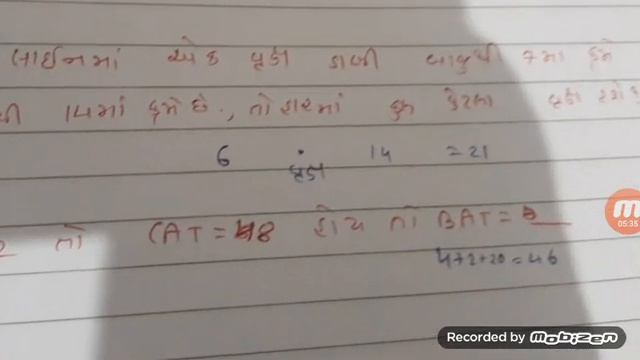 લાઈનમાં એક વૃક્ષ ડાબી બાજુથી 7માં ક્રમે
થી 14માં ક્રમે છે, તો હારમાં કુલ કેટલા વૃક્ષો હશે
6 વૃક્ષ 14 = 21
2 તો CAT = 48 હોય તો BAT =
4+2+20 = 46
05:35
Recorded by mobizen